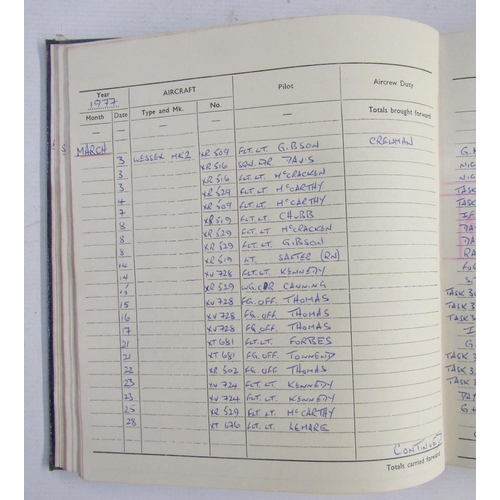 Year AIRCRAFT Pilot Aircrew Duty
1977
Month Date Type and Mk. No. — Totals brought forward
— — — —
MARCH 3 WESSEX MK2 XR 509 FLT. LT. GIBSON CREWMAN
3 XR 516 SQN. LDR DAVIS
3 XR 516 FLT. LT. McCRACKEN
3 XR 529 FLT. LT. McCARTHY
4 XR 509 FLT. LT. McCARTHY
7 XR 519 FLT. LT. CHUBB
8 XR 529 FLT. LT. McCRACKEN
8 XR 529 FLT. LT. GIBSON
8 XR 519 LT. (RN)
14 XV 728 FLT. LT. KENNEDY
14 XR 529 WG. CDR CANNING
15 XV 728 FG. OFF. THOMAS
16 XV 728 FG. OFF. THOMAS
17 XV 728 FG. OFF. THOMAS
21 XT 681 FLT. LT. FORBES
21 XT 681 FG. OFF. TOWNEND
22 XR 502 FG. OFF THOMAS
23 XV 724 FLT. LT. KENNEDY
23 XV 724 FLT. LT. KENNEDY
25 XR 529 FLT. LT. McCARTHY
28 XT 676 FLT. LT. LEMARE
CONTINUED
Totals carried forward